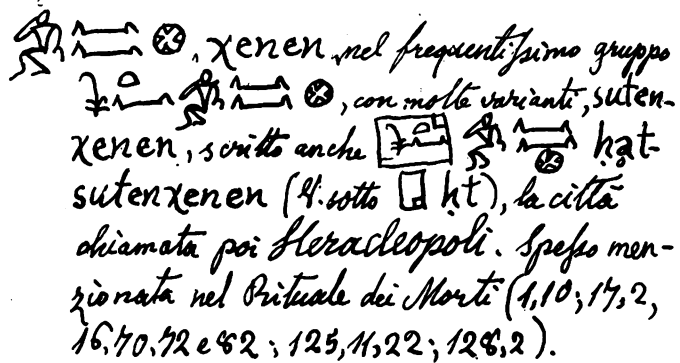 , χenen nel frequentissimo gruppo
, con molte varianti, suten-
χenen, scritto anche ḥat-
sutenχenen (V. sotto ḥt), la città
chiamata poi Heracleopoli. Spesso men-
zionata nel Rituale dei Morti (1,10; 17,2,
16,70,72 e 82; 125,11,22; 128,2).